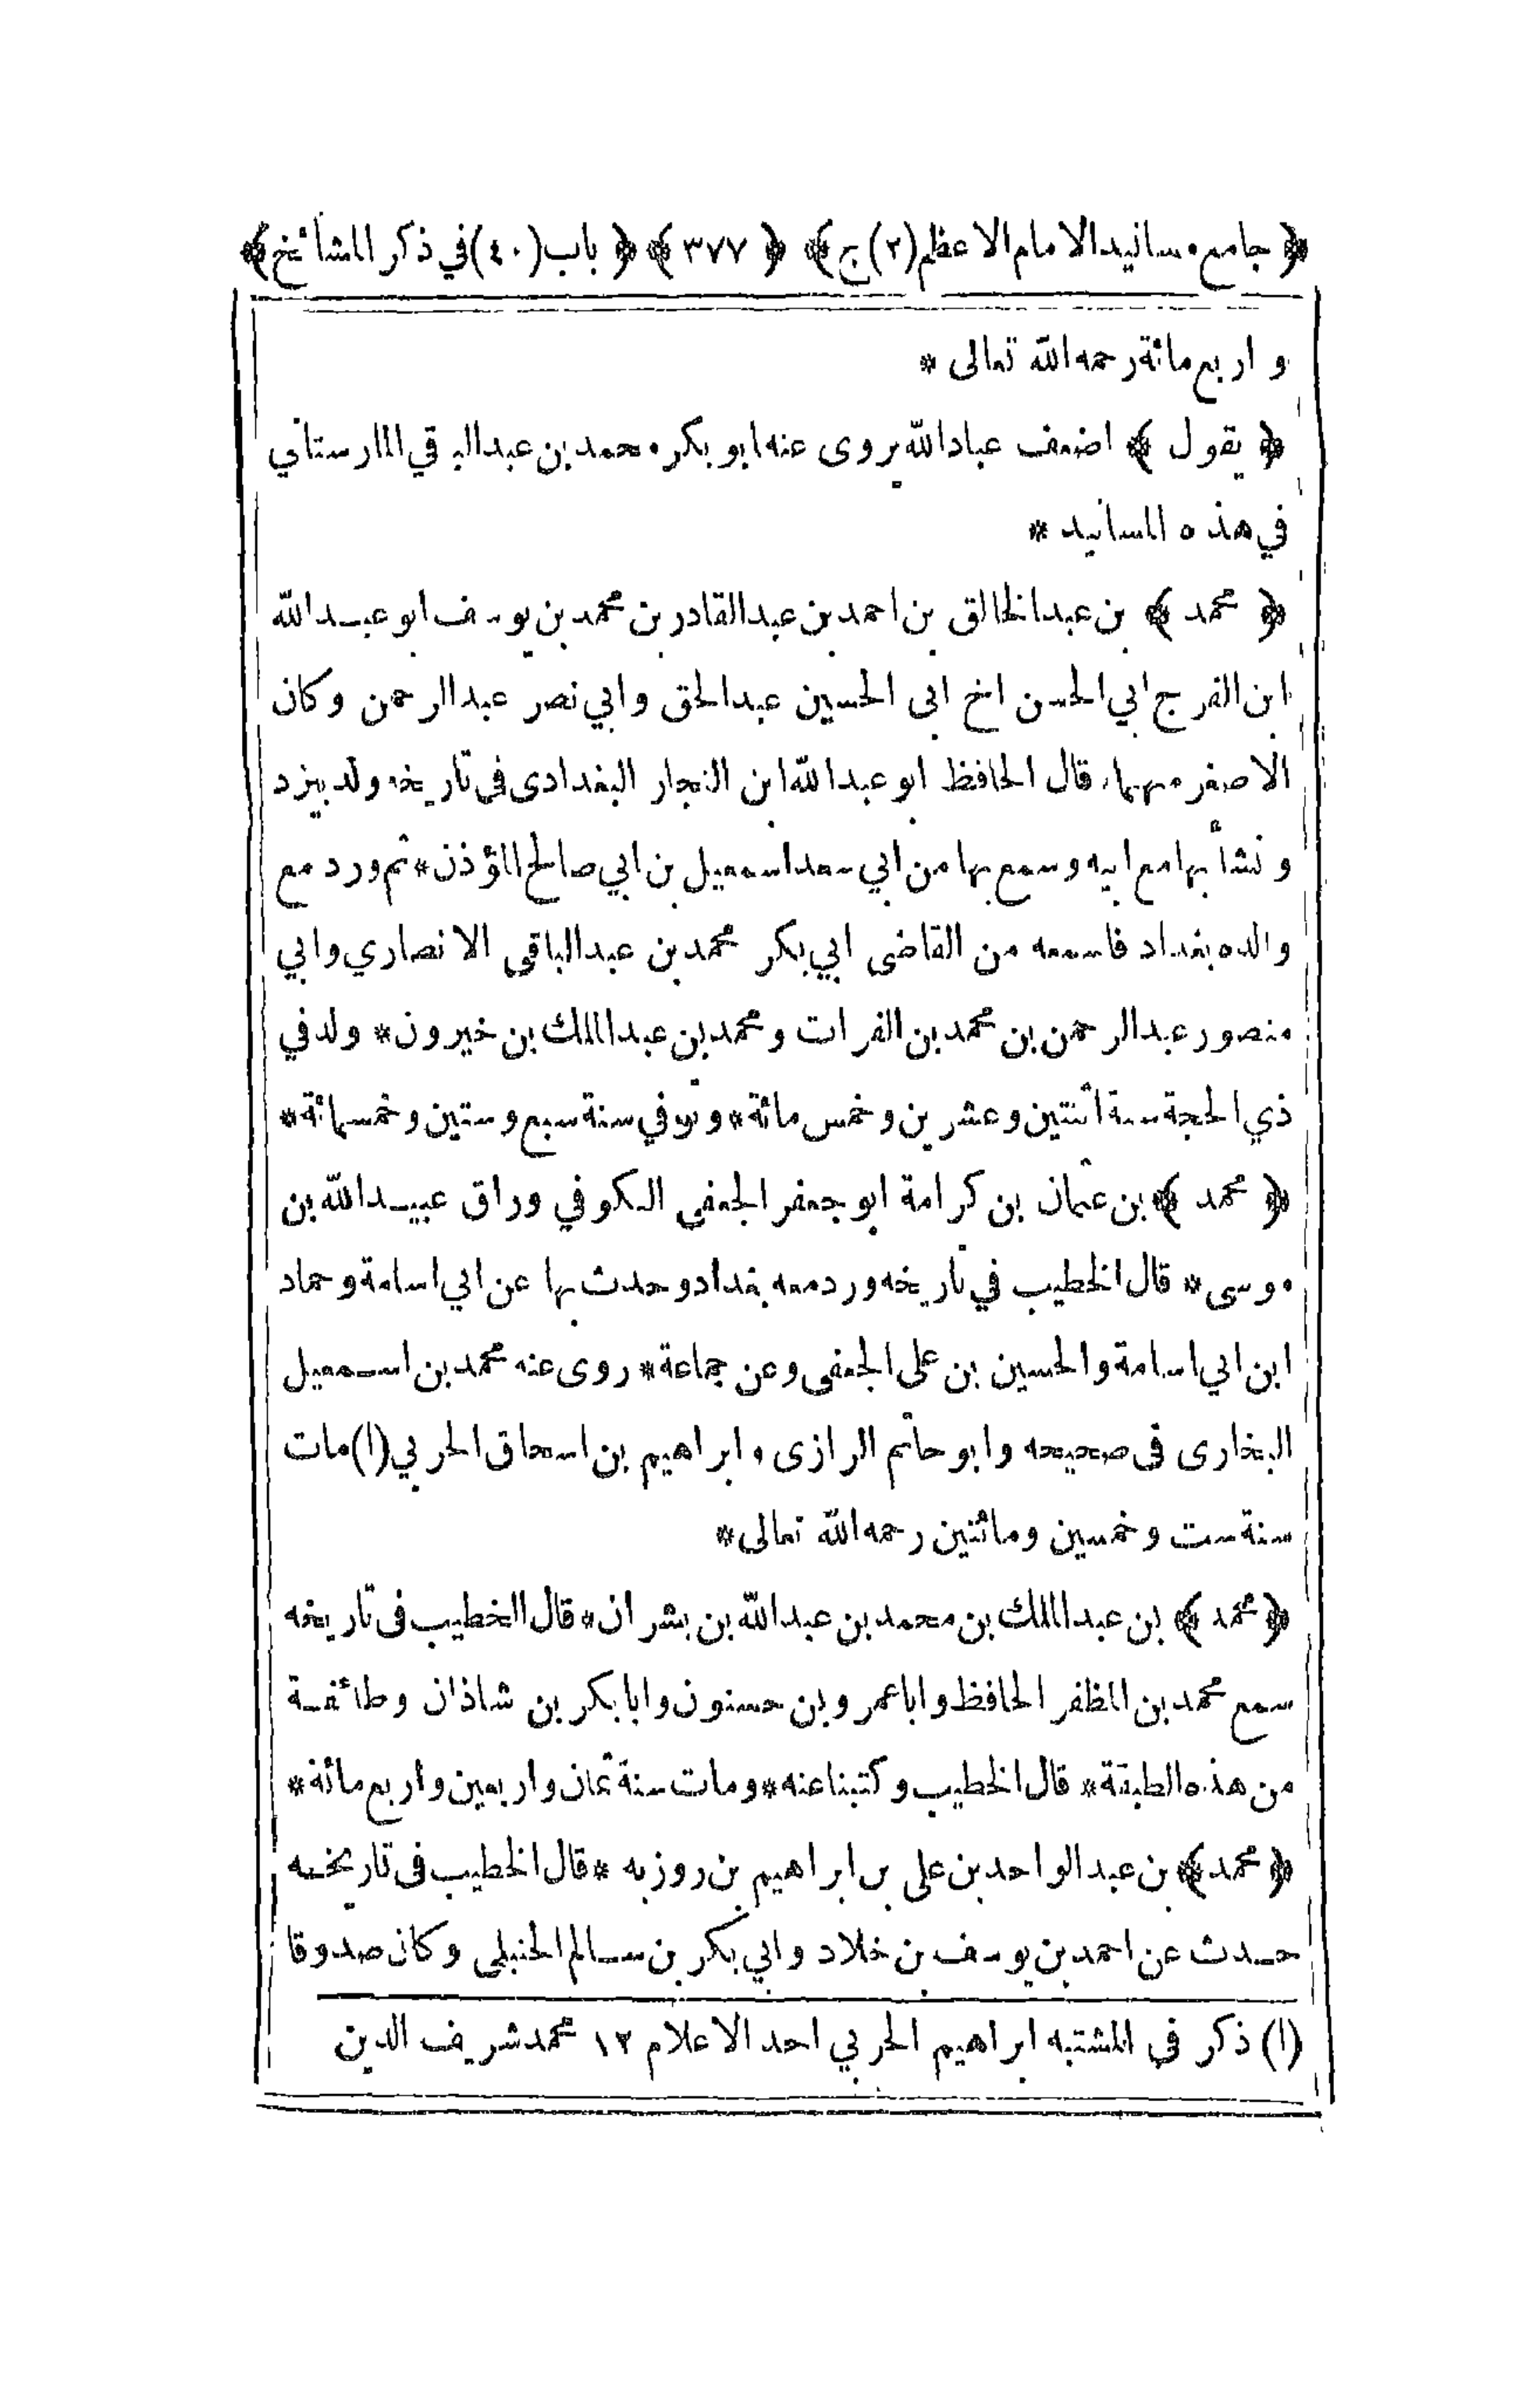 ﴿ جامع مسانيد الامام الاعظم (٢) ج ﴾ ﴿ ٣٧٧ ﴾ ﴿ باب (٤٠) في ذكر المشائخ ﴾
و اربع مائة رحمه الله تعالى *
﴿ يقول ﴾ اضعف عباد الله يروى عنه ابو بكر محمد بن عبد البا قي المارستاني
في هذه المسانيد *
﴿ محمد ﴾ بن عبد الخالق بن احمد بن عبد القادر بن محمد بن يوسف ابو عبد الله
ابن الفرج ابي الحسن اخ ابى الحسين عبد الحق وابي نصر عبد الرحمن وكان
الاصغر منهما، قال الحافظ ابو عبد الله ابن النجار البغدادى فى تاريخه ولد بيزد
و نشأ بها مع ابيه وسمع بها من ابي سعد اسمعيل بن ابي صالح المؤذن * ثم ورد مع
والده بغداد فاسمعه من القاضى ابي بكر محمد بن عبد الباقى الانصاري وابي
منصور عبد الرحمن بن محمد بن الفرات ومحمد بن عبد الملك بن خيرون * ولد في
ذي الحجة سنة اثنتين وعشرين وخمس مائة * وتوفي سنة سبع وستين وخمسمائة *
﴿ محمد ﴾ بن عثمان بن كرامة ابو جعفر الجعفى الكوفي وراق عبيد الله بن
موسى * قال الخطيب في تاريخه ورد معه بغداد وحدث بها عن ابي اسامة وحماد
ابن ابي اسامة والحسين بن على الجعفى وعن جماعة * روى عنه محمد بن اسمعيل
البخارى فى صحيحه وابو حاتم الرازى وابراهيم بن اسحاق الحربي (١) مات
سنة ست وخمسين ومائتين رحمه الله تعالى *
﴿ محمد ﴾ بن عبد الملك بن محمد بن عبد الله بن بشران * قال الخطيب فى تاريخه
سمع محمد بن المظفر الحافظ وابا عمرو بن حسنون وابا بكر بن شاذان وطائفة
من هذه الطبقة * قال الخطيب وكتبنا عنه * ومات سنة ثمان واربعين واربع مائة *
﴿ محمد ﴾ بن عبد الواحد بن على بن ابراهيم بن روزبه * قال الخطيب فى تاريخه
حدث عن احمد بن يوسف بن خلاد وابي بكر بن سالم الحنبلى وكان صدوقا
(١) ذكر في المشتبه ابراهيم الحربي احد الاعلام ١٢ محمد شريف الدين